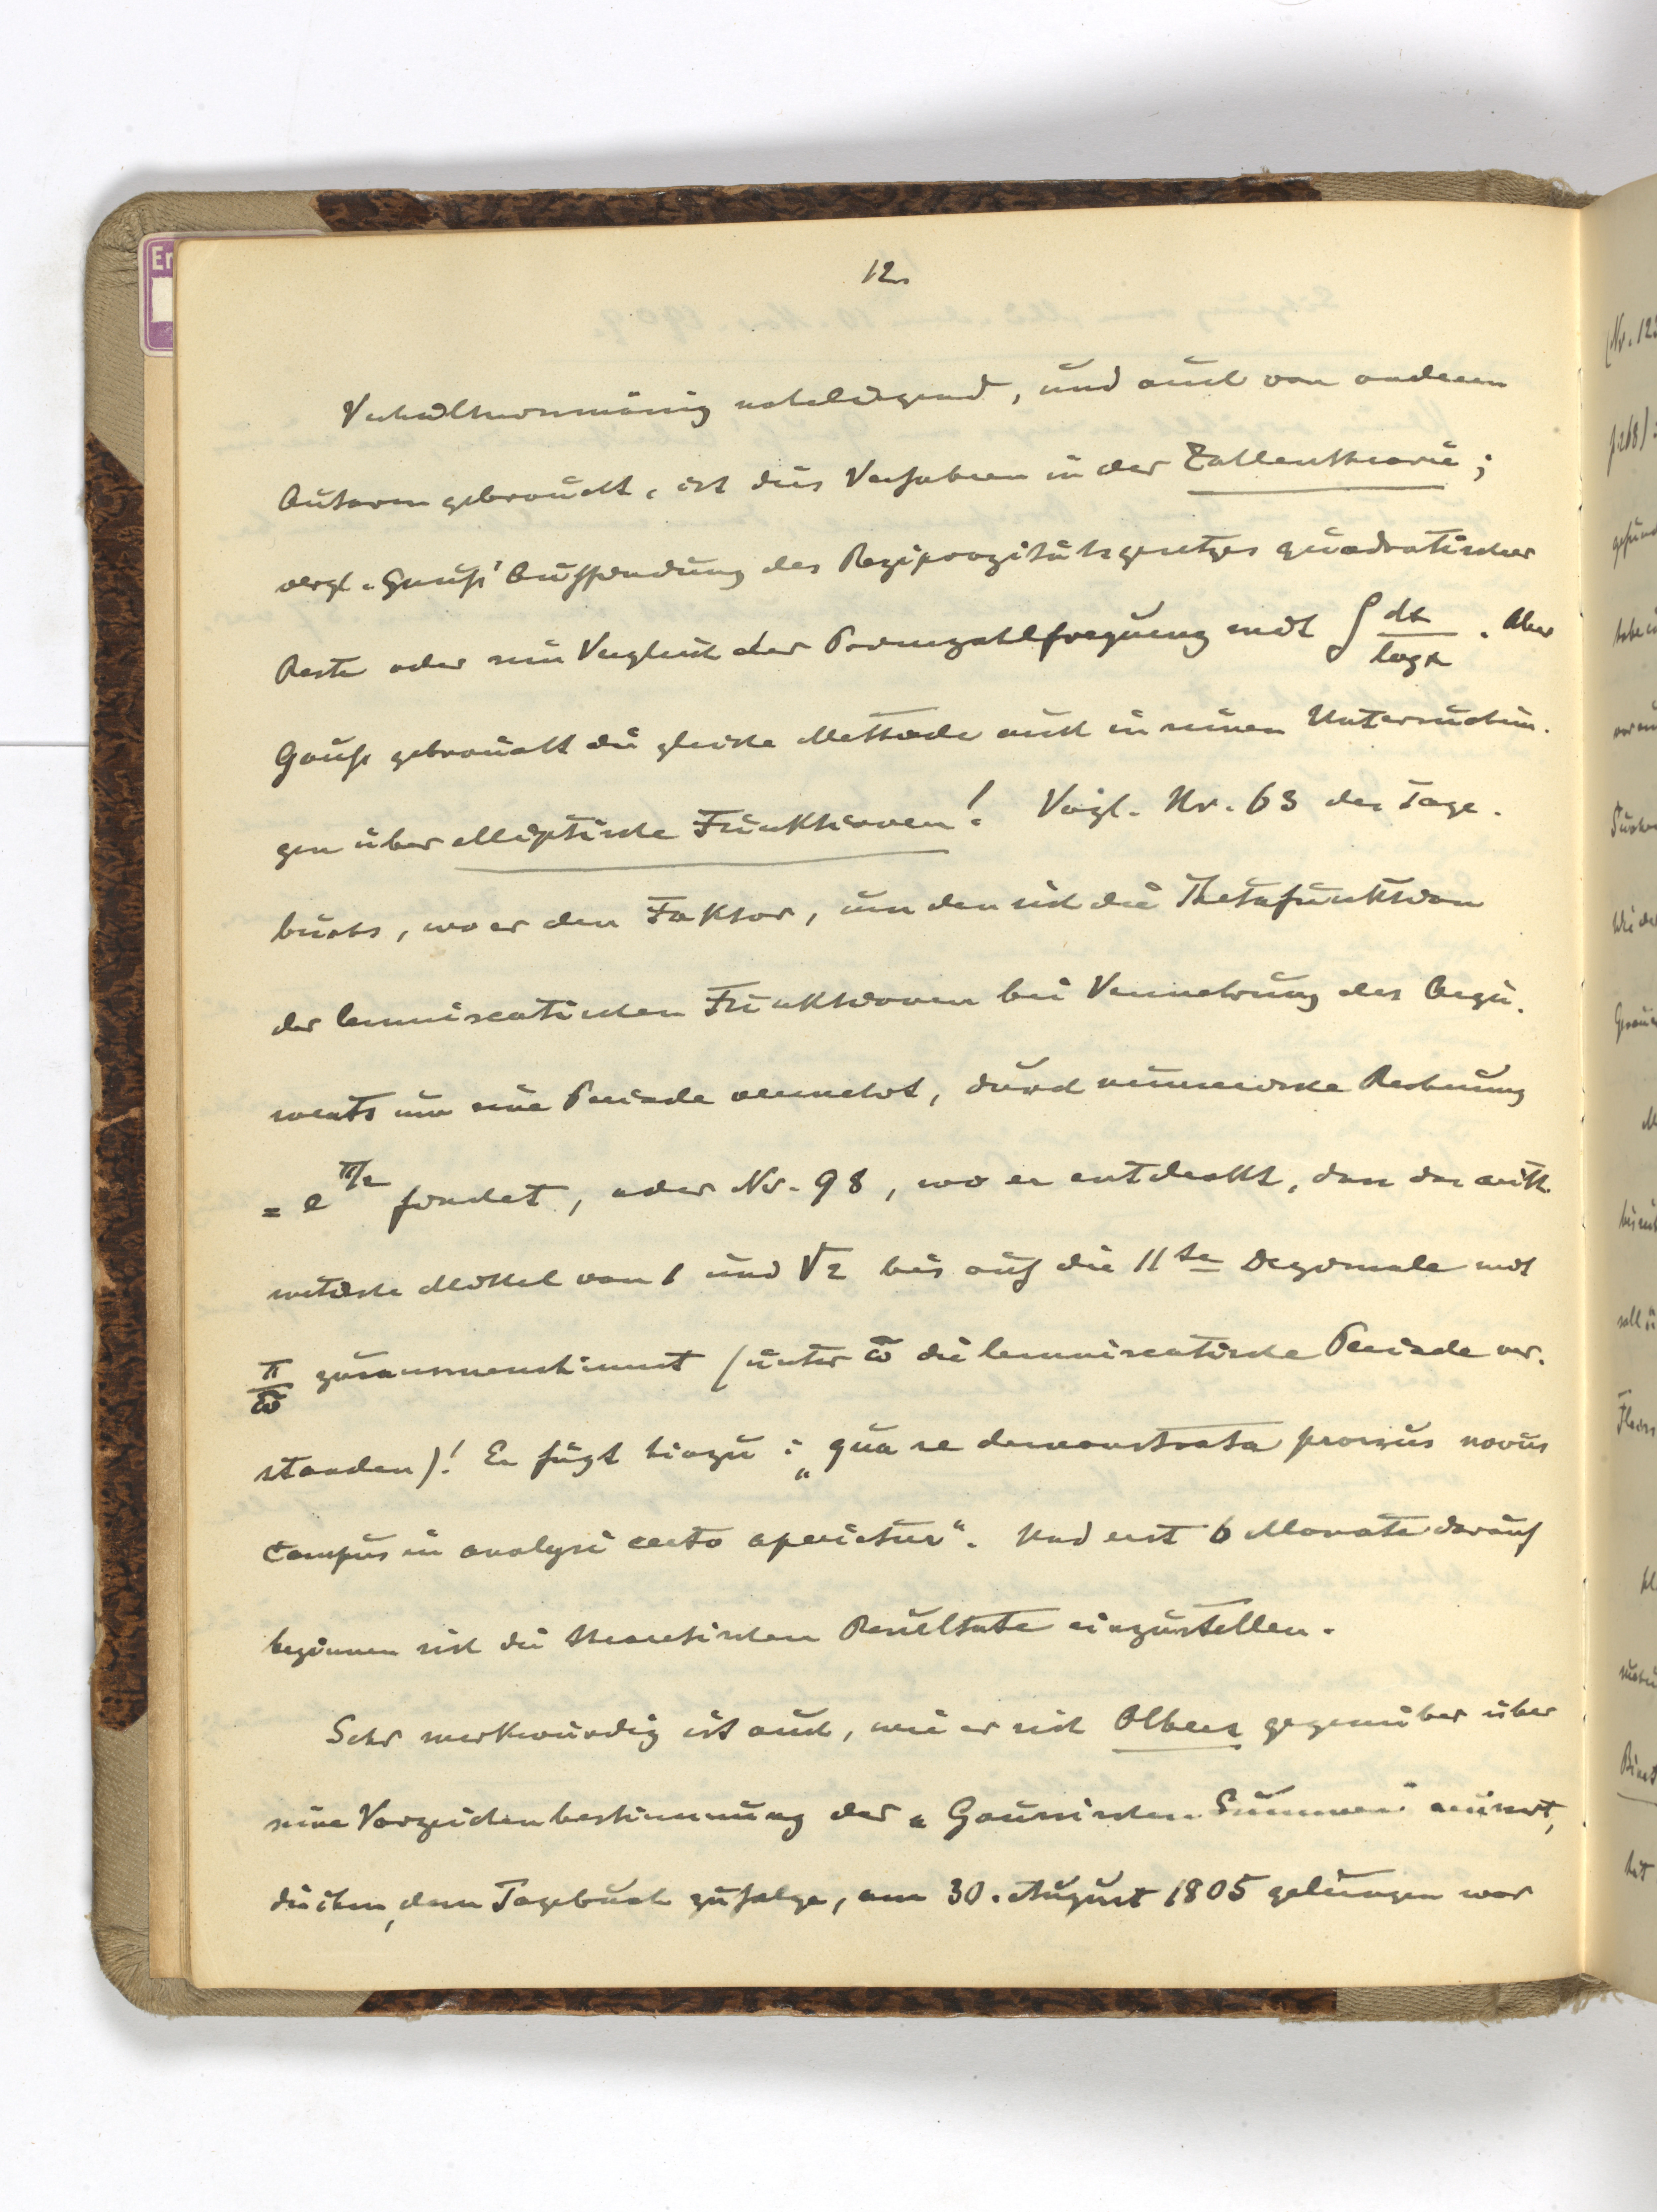 12.
Verhältnismässig naheliegend, und auch von anderen
Autoren gebraucht, ist dies Verfahren in der Zahlentheorie;
vergl. Gauß' Auffindung des Reziprozitätsgesetzes quadratischer
Reste oder sein Vergleich der Primzahlfrequenz mit ∫ dx/log x. Aber
Gauß gebraucht die gleiche Methode auch in seinen Untersuchun-
gen über elliptische Funktionen! Vergl. Nr. 63 des Tage-
buchs, wo er den Faktor, um den sich die Thetafunktion
der lemniscatischen Funktionen bei Vermehrung des Argu-
ments um eine Periode vermehrt, durch numerische Rechnung
= e^π/2 findet, oder Nr. 98, wo er entdeckt, dass das arith-
metische Mittel von 1 und √2 bis auf die 11te Dezimale mit
π/ω̃ zusammenstimmt (unter ω̃ die lemniscatische Periode ver-
standen)! Er fügt hinzu: „qua re demonstrata prorsus novus
campus in analysi certo aperietur“. Und erst 6 Monate darauf
beginnen sich die theoretischen Resultate einzustellen.
Sehr merkwürdig ist auch, wie er sich Olbers gegenüber über
seine Vorzeichenbestimmung der „Gaussischen Summen“ äussert,
die ihm, dem Tagebuch zufolge, am 30. August 1805 gelungen war
Er
(Nr. 123